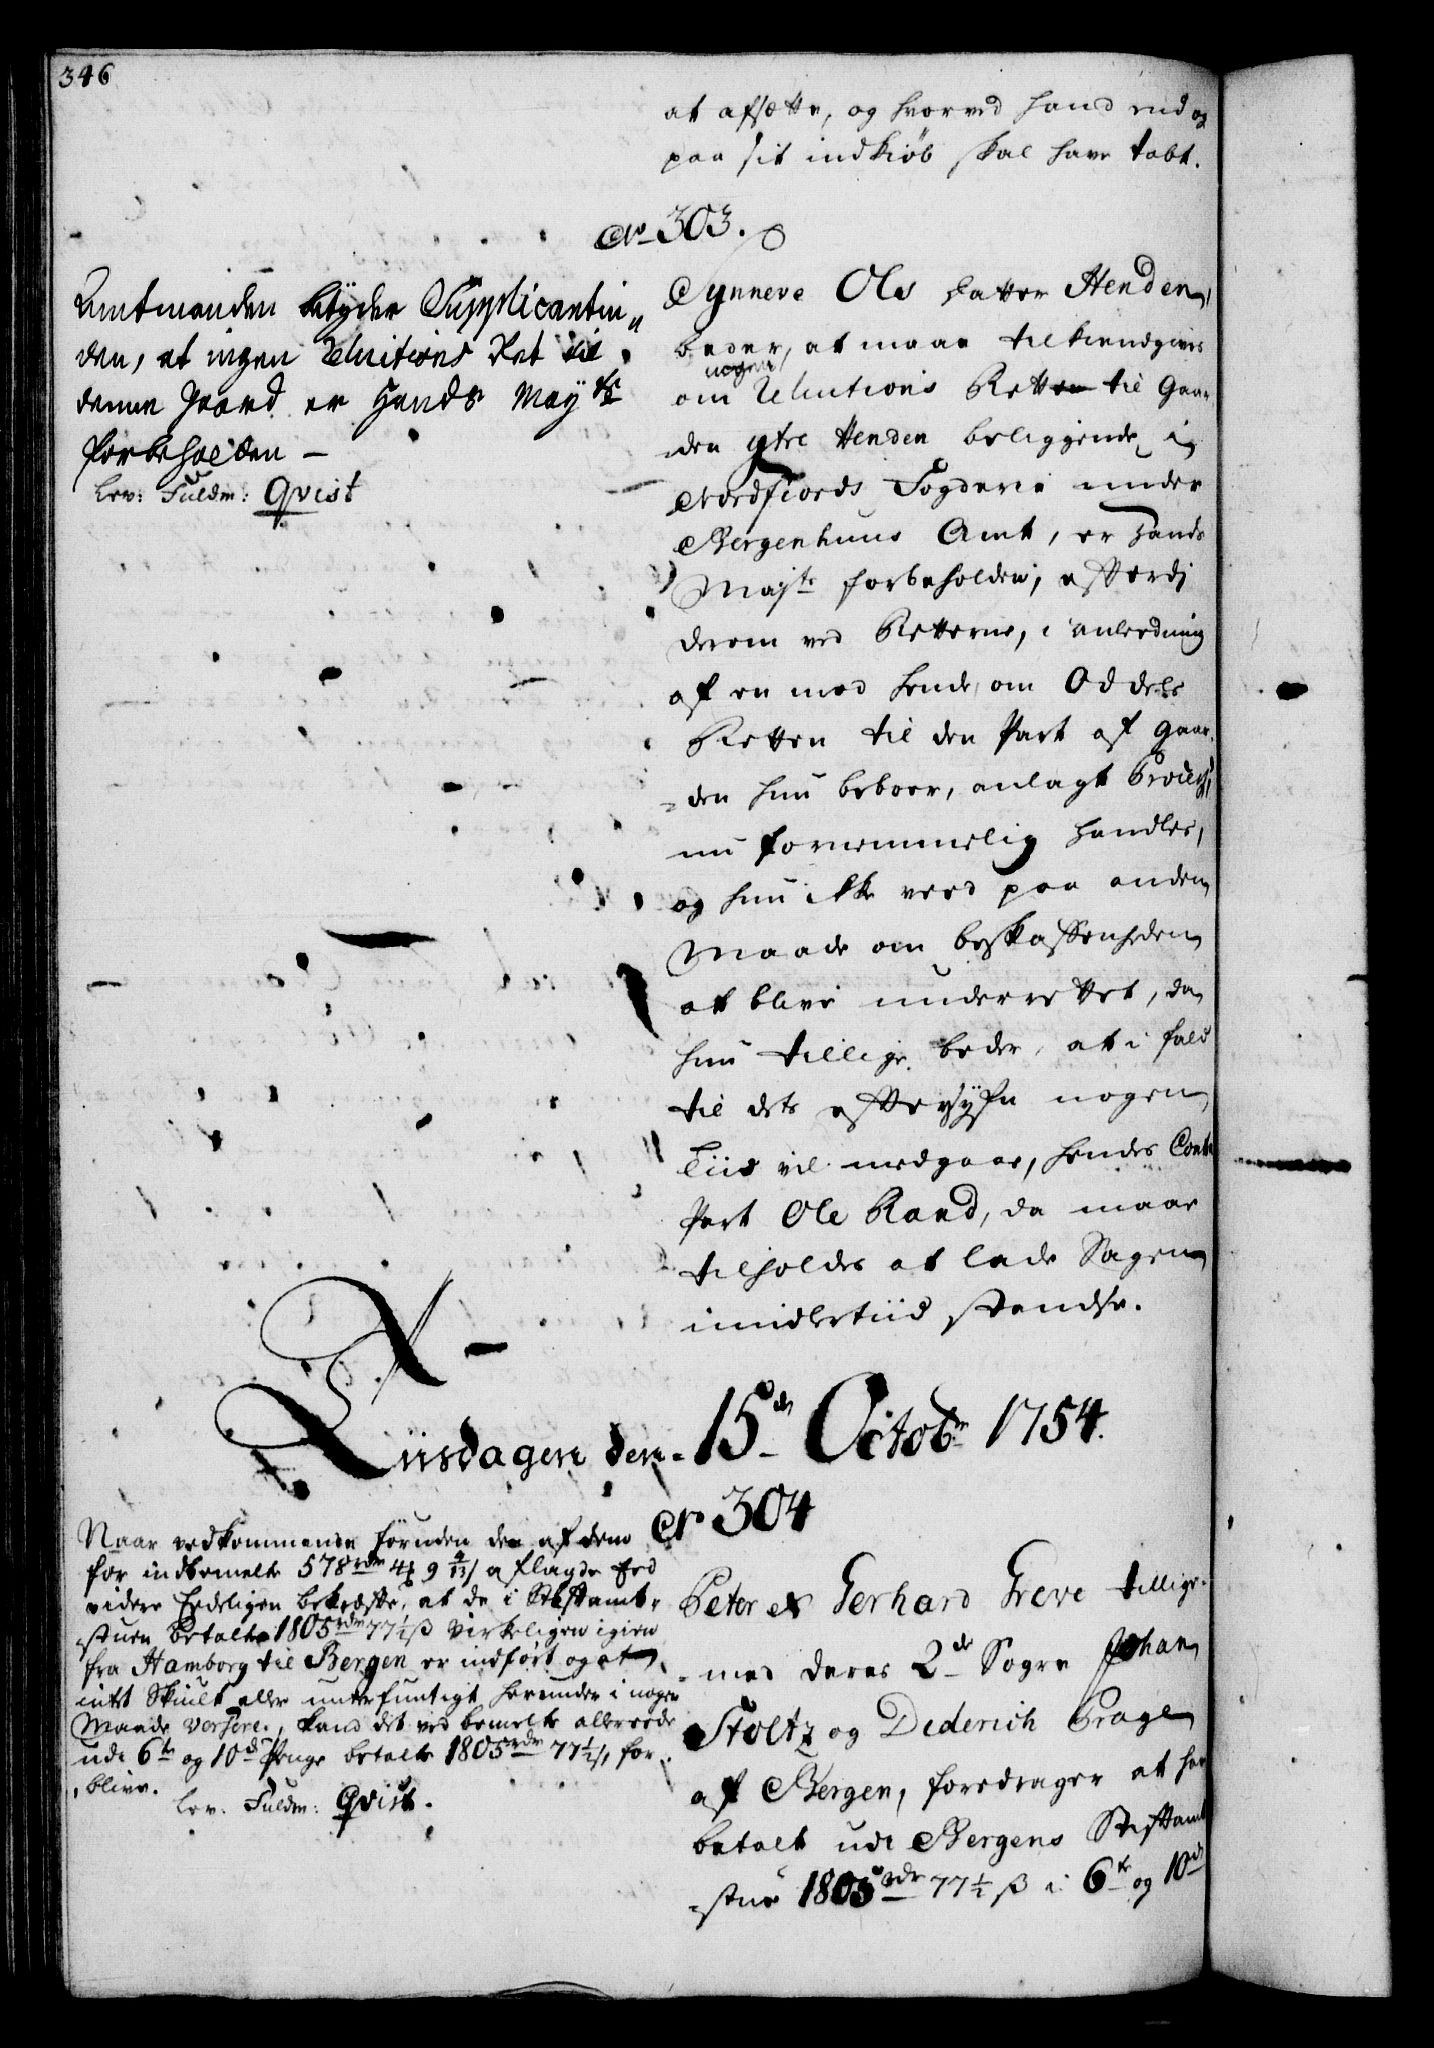 346
at afsætte, og hvorved hand end og
paa sit indkiøb skal have tabt.
No 303.
Amtmanden betyder Supplicantin„
den, at ingen Reluitions Ret til
denne Gaard er Hands Mayts
forbeholden –
Lev: Fuldm: Qvist
Synneve Ols Datter Henden,
beder, at maae tilkiendgives
om nogen Reluitions Retten til Gaar
den ytre Henden beliggende i
Nordfiords Fogderie under
Bergenhuus Amt, er Hands
Majts forbeholden, efterdi
derom ved Retterne, i anledning
af en mod hende, om Oddels
Retten til den Part af Gaar-
den hun beboer, anlagt Process,
nu fornemmelig handles,
og hun ikke veed paa anden
Maade om beskaffenheden
at blive underrettet, da
hun tillige beder, at i fald
til dets eftersyn nogen
Tiid vil medgaae, hendes Contra
Part Ole Rand, da maae
tilholdes at lade Sagen
imidlertiid standse.
Tiisdagen den 15de Octobr 1754.
No 304
Naar vedkommende foruden den af dem
for indbemelte 578 rdr 4 ₻ 9 4/13 s aflagde Eed
videre Eedeligen bekræfte, at de i Stiftamt-
stuen betalte 1805 rdr 77½ ß virkeligen igien
fra Hamborg til Bergen er indført og at
intet Skiult eller underfundigt herunder i nogen
Maade versere, kand det ved bemelte allereede
udi 6te og 10de Penge betalte 1805 rdr 77½ s, for-
blive.
Lev: Fuldm: Qvist.
Peter et Gerhard Greve tillige-
med deres 2de Sogre Johan
Stoltz og Dederich Prage
af Bergen, foredrager at have
betalt udi Bergens Stiftamt
stue 1805 rdr 77½ ß i 6te og 10de